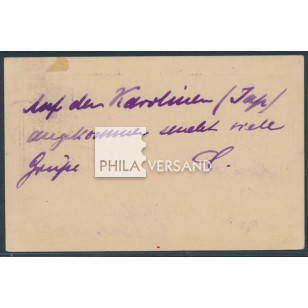 Auf den Karolinen (Jap)
angekommen sendet viele
Grüße S.
PHILA VERSAND